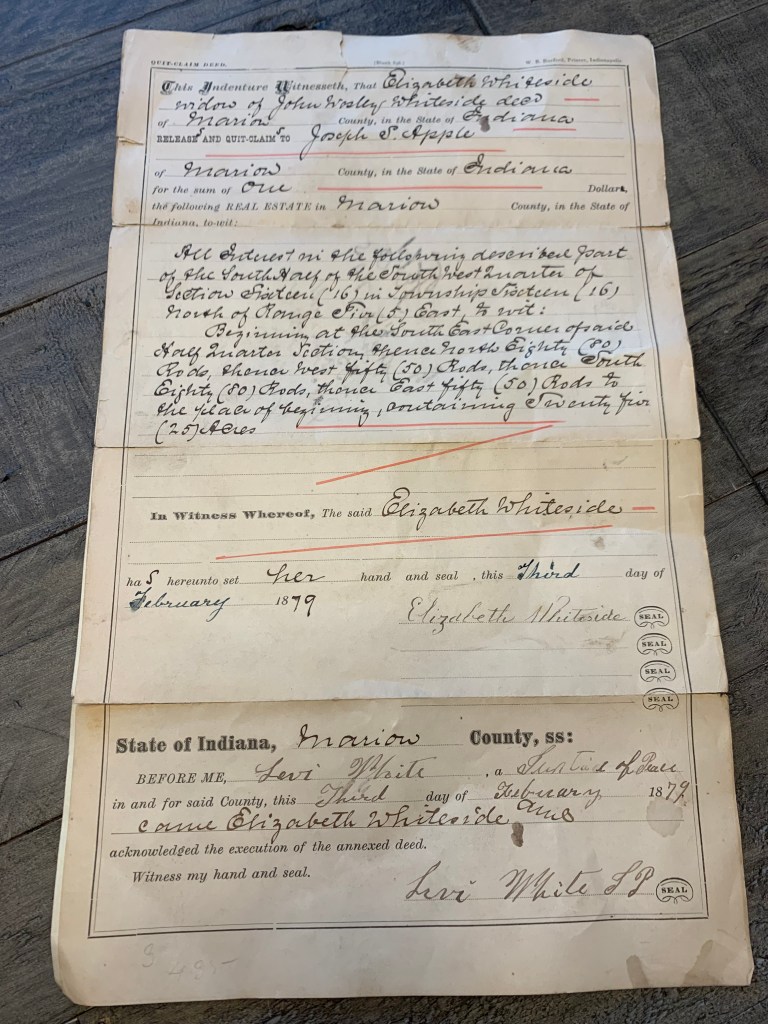 QUIT-CLAIM DEED.
W. B. Burford, Printer, Indianapolis
This Indenture Witnesseth, That Elizabeth Whiteside
widow of John Wesley Whiteside decd
of Marion County, in the State of Indiana
RELEASES AND QUIT-CLAIMS TO Joseph S. Apple
of Marion County, in the State of Indiana
for the sum of One Dollars,
the following REAL ESTATE in Marion County, in the State of
Indiana, to-wit:
All Interest in the following described part
of the South Half of the South West Quarter of
Section Sixteen (16) in Township Sixteen (16)
North of Range Five (5) East, to wit:
Beginning at the South East Corner of said
Half Quarter Section, thence North Eighty (80)
Rods, thence West fifty (50) Rods, thence South
Eighty (80) Rods, thence East fifty (50) Rods to
the place of beginning, containing Twenty five
(25) Acres
In Witness Whereof, The said Elizabeth Whiteside
has hereunto set her hand and seal, this Third day of
February 1879
Elizabeth Whiteside SEAL
SEAL
SEAL
SEAL
State of Indiana, Marion County, ss:
BEFORE ME, Levi White, a Justice of Peace
in and for said County, this Third day of February 1879
came Elizabeth Whiteside and
acknowledged the execution of the annexed deed.
Witness my hand and seal.
Levi White JP SEAL